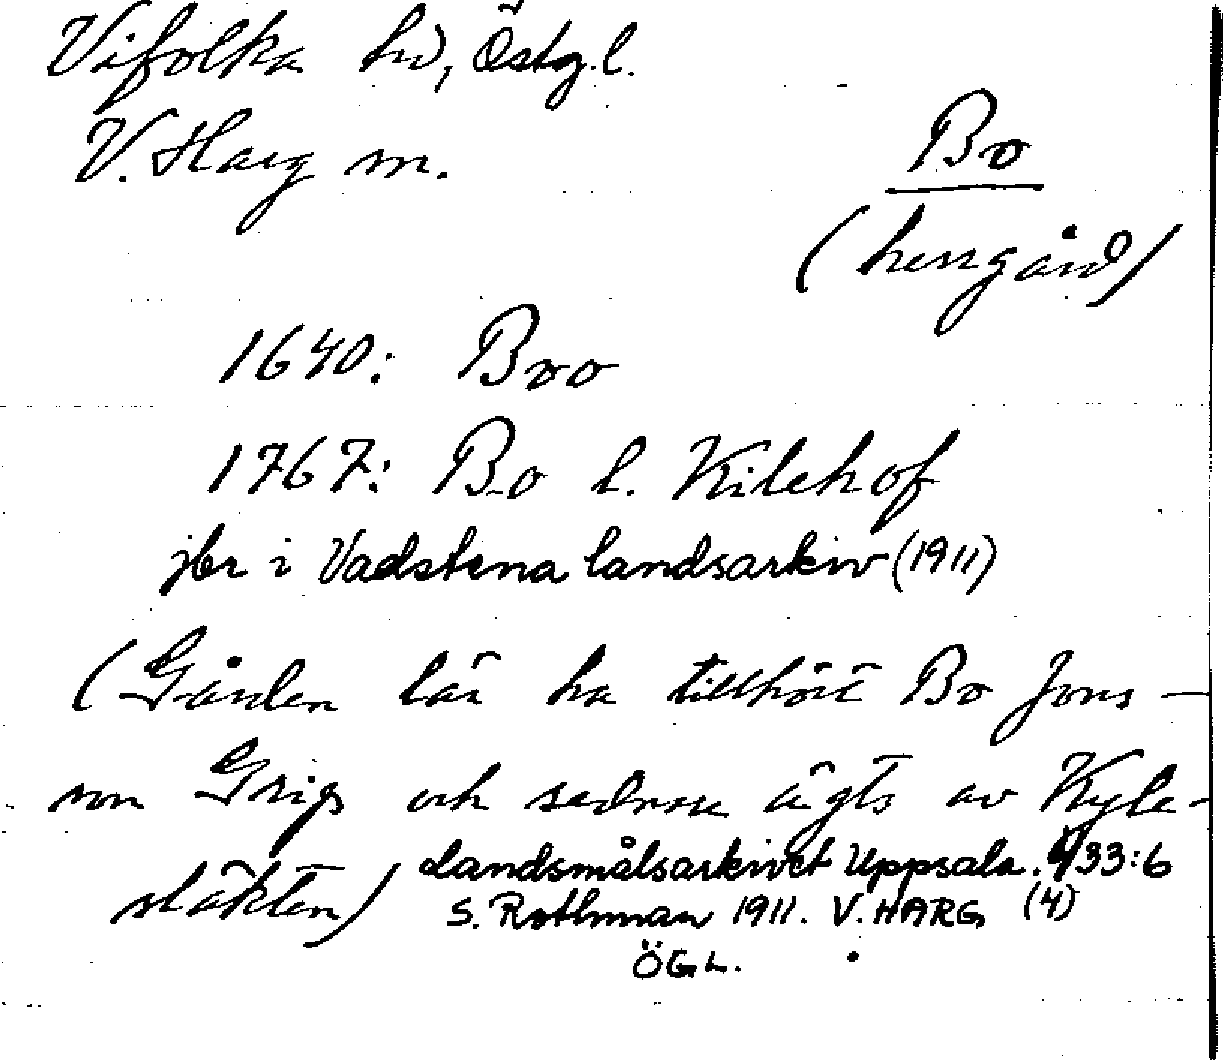 Vifolka hd, Östg. l.
V. Harg sn.
Bo
(herrgård)
1640: Boo
1767: Bo l. Kilehof
jbr i Vadstena landsarkiv (1911)
(Gården lär ha tillhört Bo Jons-
son Grip och sedan ägts av Kyle-
släkten)
Landsmålsarkivet Uppsala. 33:6
S. Rothman 1911. V. HARG (4)
ÖGL.